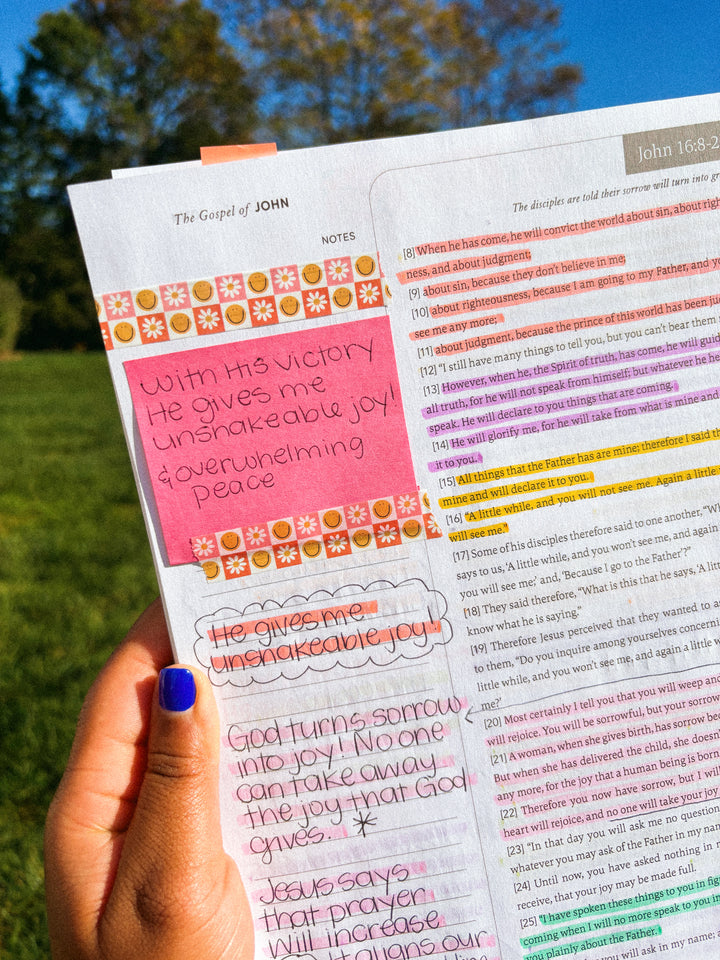 The Gospel of JOHN
NOTES
with His victory
He gives me
unshakeable joy!
& overwhelming
peace
He gives me
unshakeable joy!
God turns sorrow
into joy! No one
can take away
the joy that God
gives. *
Jesus says
that prayer
will increase
aligns our
John 16:8-2
The disciples are told their sorrow will turn into
[8] When he has come, he will convict the world about sin, about
ness, and about judgment;
[9] about sin, because they don't believe in me;
[10] about righteousness, because I am going to my Father, and
see me any more;
[11] about judgment, because the prince of this world has been
[12] "I still have many things to tell you, but you can't bear them
[13] However, when he, the Spirit of truth, has come, he will
all truth, for he will not speak from himself; but whatever he
speak. He will declare to you things that are coming.
[14] He will glorify me, for he will take from what is mine and
it to you.
[15] All things that the Father has are mine; therefore I said
mine and will declare it to you.
[16] "A little while, and you will not see me. Again a little
will see me."
[17] Some of his disciples therefore said to one another,
says to us, 'A little while, and you won't see me, and again
you will see me;' and, 'Because I go to the Father'?"
[18] They said therefore, "What is this that he says, 'A
know what he is saying."
[19] Therefore Jesus perceived that they wanted to
to them, "Do you inquire among yourselves
little while, and you won't see me, and again a little
me?'
[20] Most certainly I tell you that you will weep and
will rejoice. You will be sorrowful, but your sorrow
[21] A woman, when she gives birth, has sorrow
But when she has delivered the child, she
any more, for the joy that a human being is born
[22] Therefore you now have sorrow, but I will
heart will rejoice, and no one will take your joy
[23] "In that day you will ask me no
whatever you may ask of the Father in my
[24] Until now, you have asked nothing in
receive, that your joy may be made full.
[25] "I have spoken these things to you in
coming when I will no more speak to you in
you plainly about the Father.
you will ask in my name;